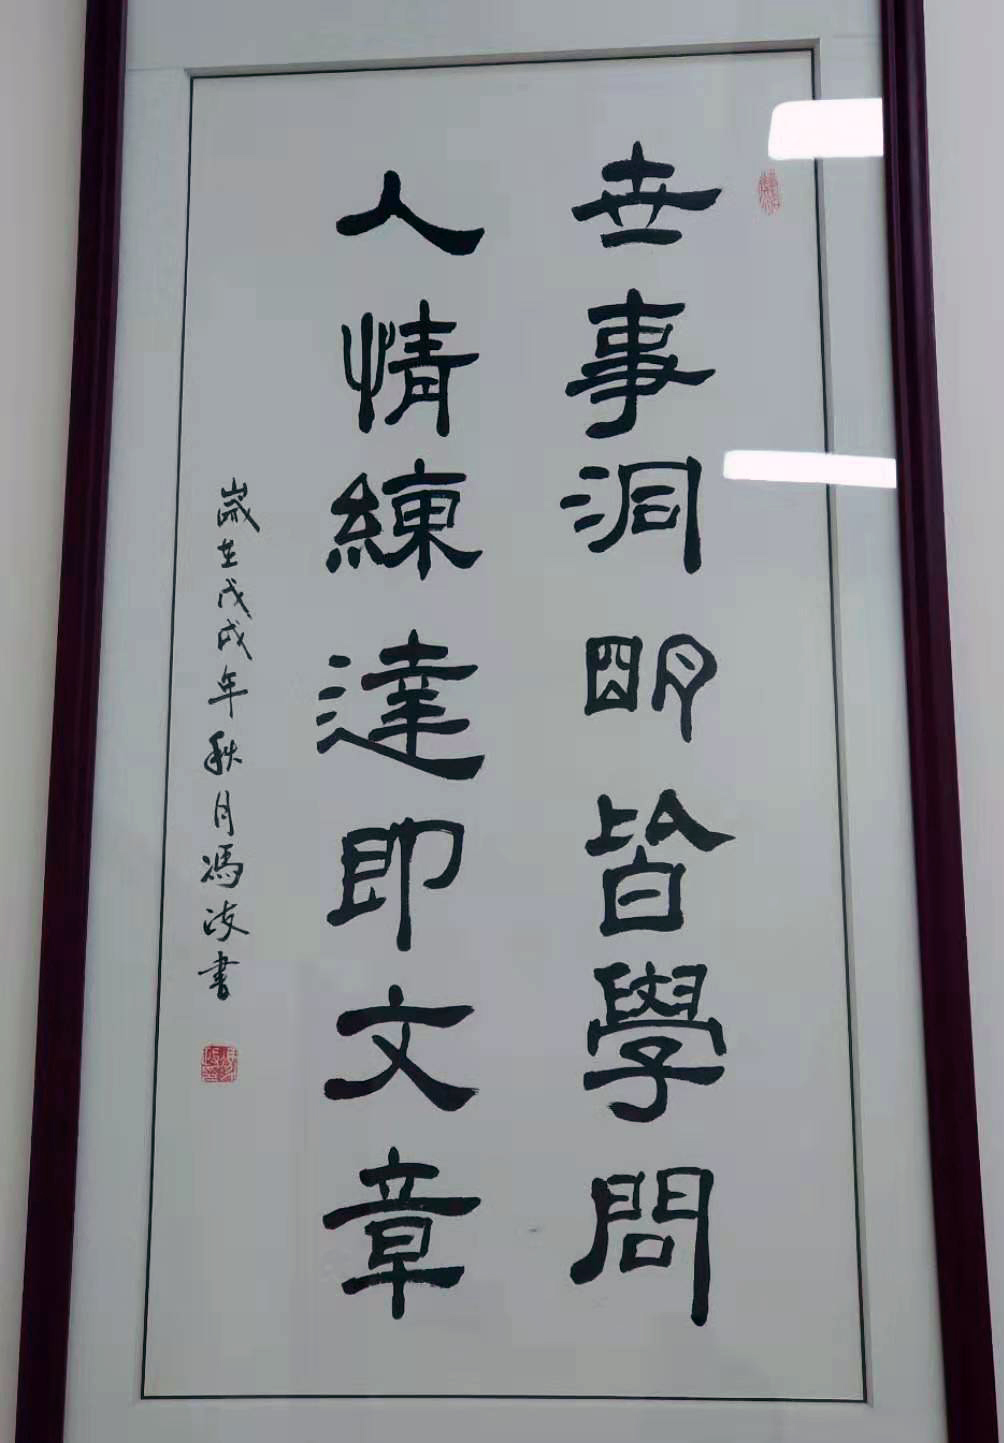 世事洞明皆學問
人情練達即文章
歲在戊戌年秋月馮波書